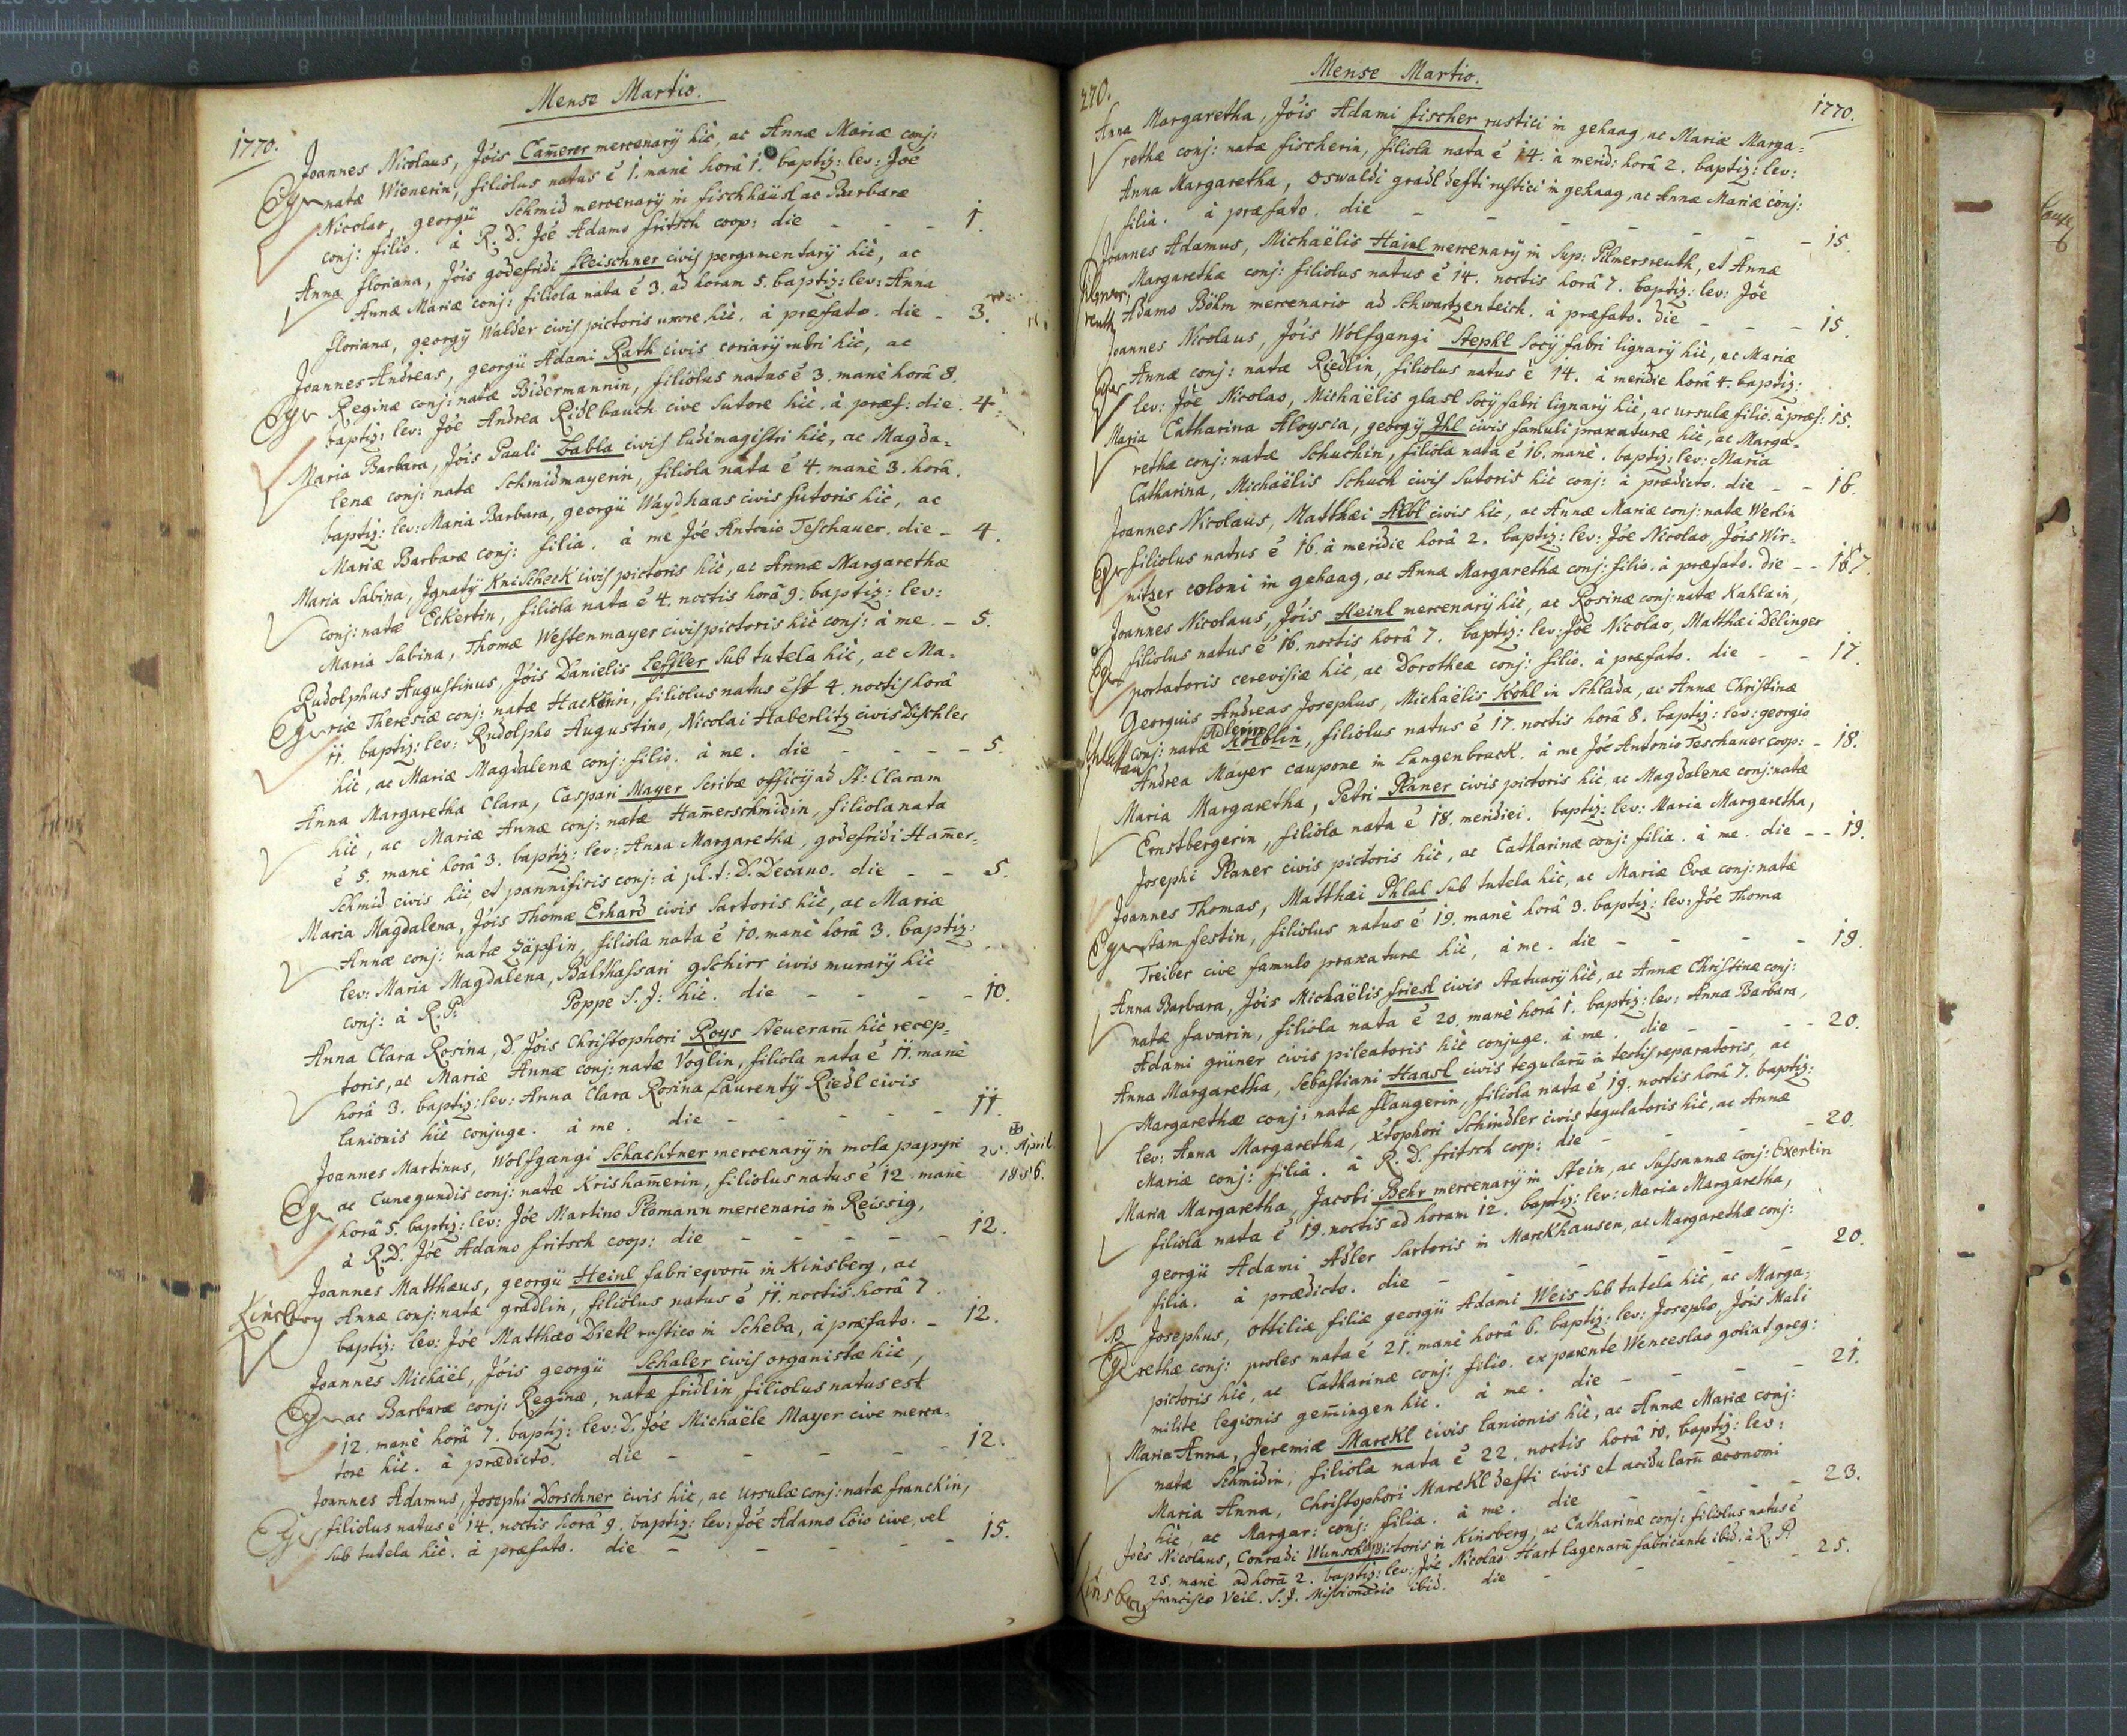 Mense Martio.
1770.
Joannes Nicolaus, Jôis Cam̄erer mercenarÿ hîc, ac Annæ Mariæ conj:
Egr natæ Wienerin, filiolus natus ē 1. manè horâ 1. baptiz: lev: Jôe
Nicolao, georgii Schmid mercenarÿ in fischhäusl ac Barbaræ
conj: filio. à R. D. Jôe Adamo fritsch coop: die - - - 1.
Anna floriana, Jôis godefridi fleischner civis pergamentarÿ hîc, ac
Annæ Mariæ conj: filiola nata ē 3. ad horam 5. baptiz: lev: Anna
floriana, georgÿ Walder civis pictoris uxore hîc. à præfato. die - 3.
Joannes Andreas, georgii Adami Rath civis coriarÿ rubri hîc, ac
Egr Reginæ conj: natæ Bidermannin, filiolus natus ē 3. manè horâ 8.
baptiz: lev: Jôe Andrea Ridl bauch cive sutore hîc. à præf: die. 4.
Maria Barbara, Jôis Pauli Zabla civis ludimagistri hîc, ac Magda=
lenæ conj: natæ Schmidmayerin, filiola nata ē 4. manè 3. horâ.
baptiz: lev: Maria Barbara, georgii Waydhaas civis sutoris hîc, ac
Mariæ Barbaræ conj: filia. à me Jôe Antonio Teschauer. die - 4.
Maria Sabina, Ignatÿ Knischeck civis pictoris hîc, ac Annæ Margarethæ
conj: natæ Eckertin, filiola nata ē 4. noctis horâ 9. baptiz: lev:
Maria Sabina, Thomæ Westenmayer civis pictoris hîc conj: à me. - 5.
Rudolphus Augustinus, Jôis Danielis Leffler sub tutela hîc, ac Ma=
Egr riæ Theresiæ conj: natæ Hacklin, filiolus natus est 4. noctis horâ
11. baptiz: lev: Rudolpho Augustino, Nicolai Haberlitz civis Dischler
hîc, ac Mariæ Magdalenæ conj: filio. à me. die - - - - 5.
Anna Margaretha Clara, Caspari Mayer scribæ officÿ ad St: Claram
hîc, ac Mariæ Annæ conj: natæ Ham̄erschmidin, filiola nata
ē 5. manè horâ 3. baptiz: lev: Anna Margaretha, godefridi Ham̄er=
schmid civis hîc et pannificis conj: à pl. t: D. Decano. die - - 5.
Maria Magdalena, Jôis Thomæ Erhard civis sartoris hîc, ac Mariæ
Annæ conj: natæ Zäpfin, filiola nata ē 10. manè horâ 3. baptiz:
lev: Maria Magdalena, Balthassari gschirr civis murarÿ hîc
conj: à R. P. Poppe S. J: hîc. die - - - - 10.
Anna Clara Rosina, D. Jôis Christophori Roys steuerarū hîc recep=
toris, ac Mariæ Annæ conj: natæ Voglin, filiola nata ē 11. manè
horâ 3. baptiz: lev: Anna Clara Rosina Laurentÿ Riedl civis
lanionis hîc conjuge. à me. die - - - - - 11.
Joannes Martinus, Wolfgangi Schachtner mercenarÿ in mola papyri
Egr ac Cunegundis conj: natæ Krisham̄erin, filiolus natus ē 12. manè
horâ 5. baptiz: lev: Jôe Martino Plomann mercenario in Reissig,
à R. D. Jôe Adamo fritsch coop: die - - - - - 12.
April.
Joannes Matthæus, georgii Heinl fabri eqvorū in Kinsberg, ac
Kinsberg Annæ conj: natæ gradlin, filiolus natus ē 11. noctis horâ 7.
baptiz: lev: Jôe Matthæo Dietl rustico in Scheba, à præfato. - 12.
Joannes Michaël, Jôis georgii Schaler civis organistæ hîc,
Egr ac Barbaræ conj: Reginæ, natæ fridlin filiolus natus est
12. manè horâ 7. baptiz: lev: D. Jôe Michaële Mayer cive merca=
tore hîc. à prædicto. die - - - - - 12.
Joannes Adamus, Josephi Dorschner civis hîc, ac Ursulæ conj: natæ franckin,
Egr filiolus natus ē 14. noctis horâ 9. baptiz: lev: Jôe Adamo Löw cive, vel
sub tutela hîc. à præfato. die - - - - - 15.
270.
Mense Martio.
1770.
Anna Margaretha, Jôis Adami fischer rustici in gehaag, ac Mariæ Marga=
rethæ conj: natæ fischerin, filiola nata ē 14. à merid: horâ 2. baptiz: lev:
Anna Margaretha, Oswaldi gradl defti rustici in gehaag, ac Annæ Mariæ conj:
filia. à præfato. die - - - - - - 15.
Joannes Adamus, Michaëlis Hainl mercenarÿ in Sup: Pilmersreuth, et Annæ
Margarethæ conj: filiolus natus ē 14. noctis horâ 7. baptiz: lev: Jôe
Adamo Böhm mercenario ad Schwartzenteich. à præfato. die - - - 15.
Joannes Nicolaus, Jôis Wolfgangi Stephl socÿ fabri lignarÿ hîc, ac Mariæ
Egr Annæ conj: natæ Riedlin, filiolus natus ē 14. à meridie horâ 4. baptiz:
lev: Jôe Nicolao, Michaëlis glasl socÿ fabri lignarÿ hîc, ac ursulæ filio. à præf: 15.
Maria Catharina Aloysia, georgÿ Ihl civis famuli praxaturæ hîc, ac Marga=
rethæ conj: natæ Schuchin, filiola nata ē 16. manè. baptiz: lev: Maria
Catharina, Michaëlis Schuch civis sutoris hîc conj: à prædicto. die - - 16.
Joannes Nicolaus, Matthæi Adl civis hîc, ac Annæ Mariæ conj: natæ Werlin
Egr filiolus natus ē 16. à meridie horâ 2. baptiz: lev: Jôe Nicolao, Jôis Wir=
nitzer coloni in gehaag, ac Annæ Margarethæ conj: filio. à præfato. die - - 17.
Joannes Nicolaus, Jôis Heinl mercenarÿ hîc, ac Rosinæ conj: natæ Kahlain,
Egr filiolus natus ē 16. noctis horâ 7. baptiz: lev: Jôe Nicolao, Matthæi Delinger
portatoris cerevisiæ hîc, ac Dorotheæ conj: filio. à præfato. die - - 17.
Georguis Andreas Josephus, Michaëlis Kohl in Schlada, ac Annæ Christinæ
Adlerin
conj: natæ Kölblin, filiolus natus ē 17. noctis horâ 8. baptiz: lev: georgio
Andrea Mayer caupone in Langenbruck. à me Jôe Antonio Teschauer coop: - 18.
Maria Margaretha, Petri Planer civis pictoris hîc, ac Magdalenæ conj: natæ
Ernstbergerin, filiola nata ē 18. meridiei. baptiz: lev: Maria Margaretha,
Josephi Planer civis pictoris hîc, ac Catharinæ conj: filia. à me. die - - 19.
Joannes Thomas, Matthæi Phlal sub tutela hîc, ac Mariæ Evæ conj: natæ
Egr stamfestin, filiolus natus ē 19. manè horâ 3. baptiz: lev: Jôe Thoma
Treiber cive famulo praxaturæ hîc, à me. die - - - - 19.
Anna Barbara, Jôis Michaëlis friesl civis statuarÿ hîc, ac Annæ Christinæ conj:
natæ favarin, filiola nata ē 20. manè horâ 1. baptiz: lev: Anna Barbara,
Adami grüner civis pileatoris hîc conjuge. à me. die - - - - 20.
Anna Margaretha, Sebastiani Haasl civis tegularū in tectis reparatoris, ac
Margarethæ conj: natæ flaugerin, filiola nata ē 19. noctis horâ 7. baptiz:
lev: Anna Margaretha, xtophori Schindler civis tegulatoris hîc, ac Annæ
Mariæ conj: filia. à R. D. fritsch coop: die - - - - 20.
Maria Margaretha, Jacobi Behr mercenarÿ in Stein, ac Sussannæ conj: Exertin
filiola nata ē 19. noctis ad horam 12. baptiz: lev: Maria Margaretha,
georgii Adami Adler sartoris in Marckhausen, ac Margarethæ conj:
filia. à prædicto. die - - - - - 20.
NB Josephus, Ottiliæ filiæ georgii Adami Weis sub tutela hîc, ac Marga=
Egr rethæ conj: proles nata ē 21. manè horâ 6. baptiz: lev: Josepho, Jôis Mali
pictoris hîc, ac Catharinæ conj: filio. ex parente Wenceslao goliat greg:
milite legionis gem̄ingen hîc. à me. die - - - - 21.
Maria Anna, Jeremiæ Marckl civis lanionis hîc, ac Annæ Mariæ conj:
natæ Schmidin, filiola nata ē 22. noctis horâ 10. baptiz: lev:
Maria Anna, Christophori Marckl defti civis et acidularū œconomi
hîc, ac Margar: conj: filia. à me. die - - - 23.
Joês Nicolaus, Conradi Wunschl pistoris in Kinsberg, ac Catharinæ conj: filiolus natus ē
25. manè ad horā 2. baptiz: lev: Jôe Nicolao Hart lagenarū fabricante ibid. à R. P.
Kinsberg francisco Veil. S. J. Missionario ibid. die - - - 25.